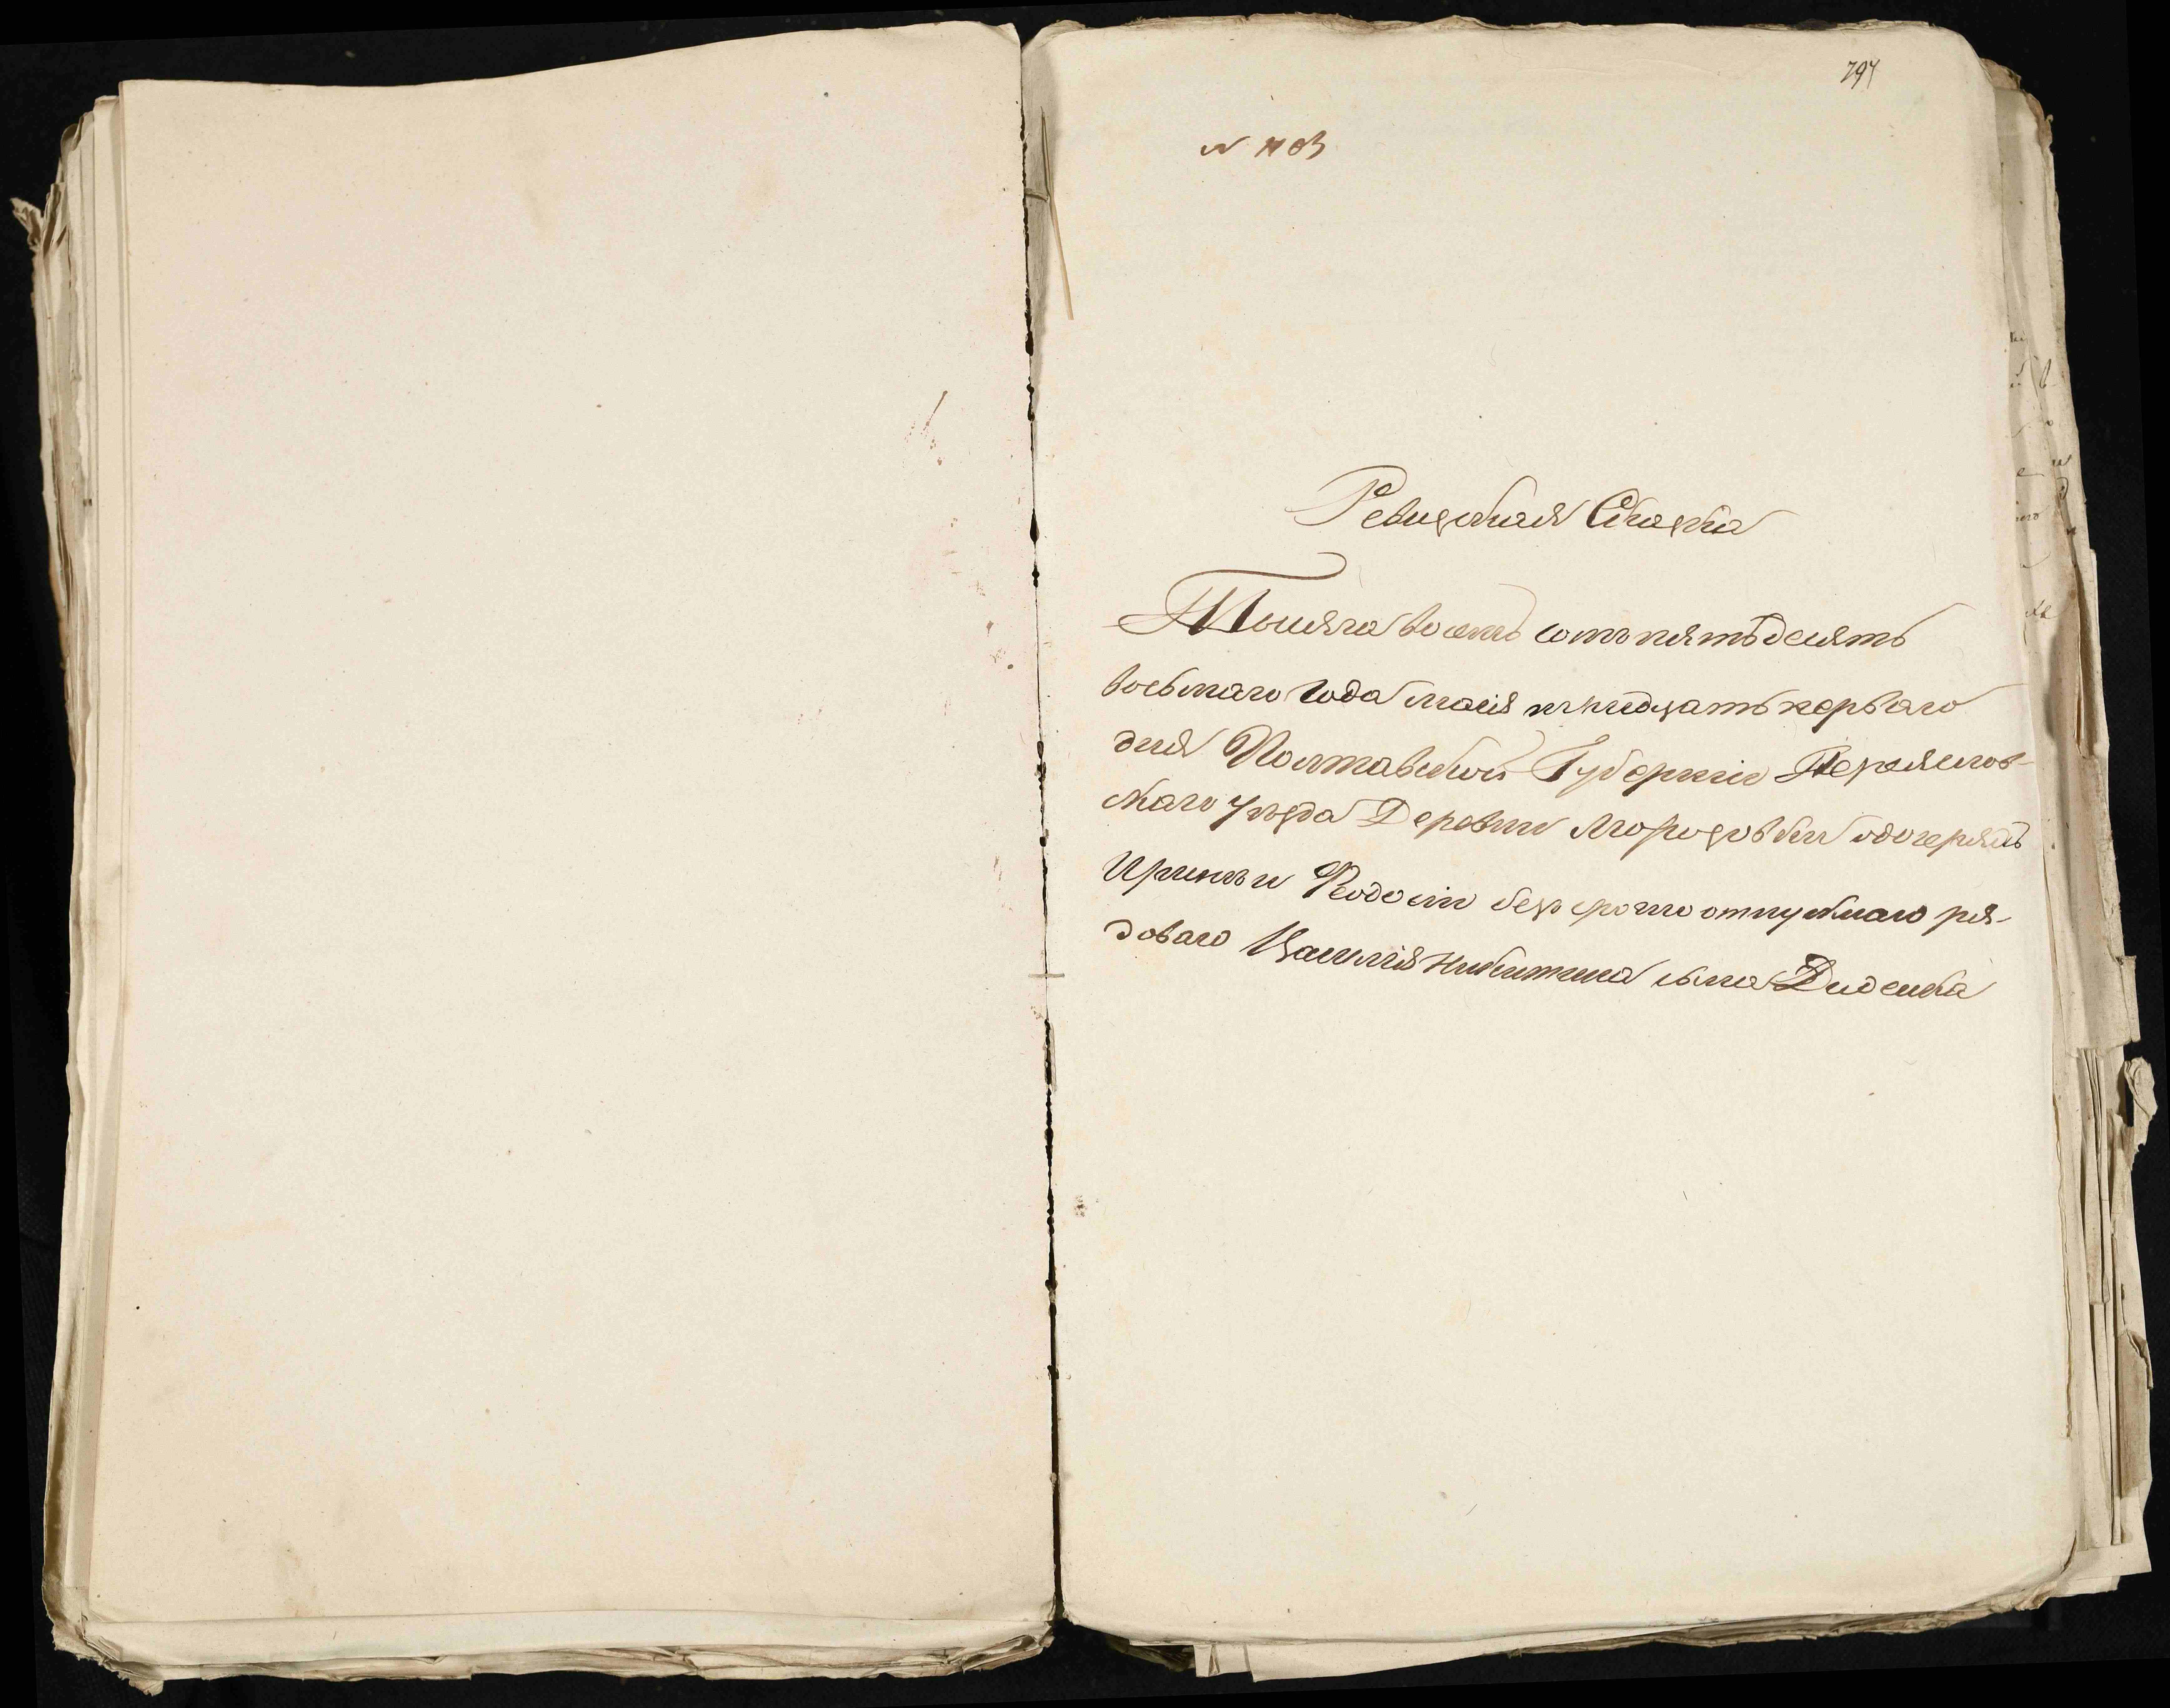 797
N 1103
Ревизская Сказка
Тысяча восемь сотъ пятьдесятъ
восьмаго года маія тридцать перваго
дня Полтавской Губерніи Переяслов-
скаго уѣзда Деревни Морозовки о дочеряхъ
Иринѣ и Феодосіи безъсрочно отпускнаго ря-
доваго Василія Никитина сына Диденка